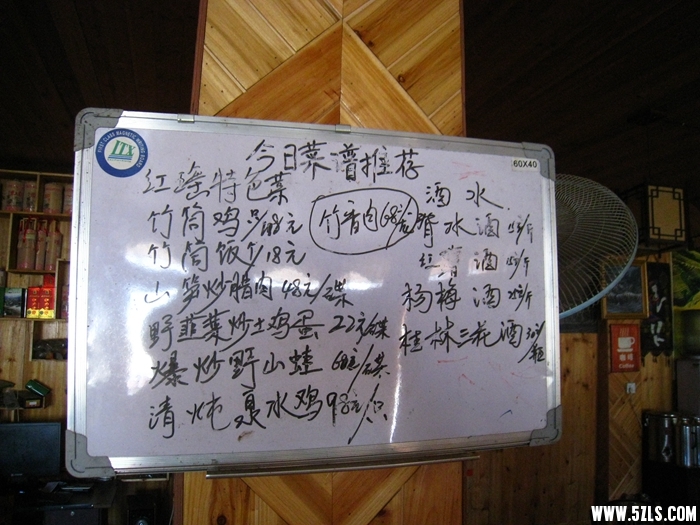 FIRST CLASS MAGNETIC WRITING BOARD
LTX
60X40
今日菜谱推荐
红瑶特色菜
竹筒鸡 只/98元
竹筒饭 个/18元
山笋炒腊肉 48元/碟
野韭菜炒土鸡蛋 22元/碟
爆炒野山蛙 68元/碟
清炖泉水鸡 98元/只
竹香肉 68元/
酒水
水酒 /斤
红 酒 /斤
杨梅酒 /斤
桂林三花酒 /瓶
Coffee
WWW.5ZLS.COM